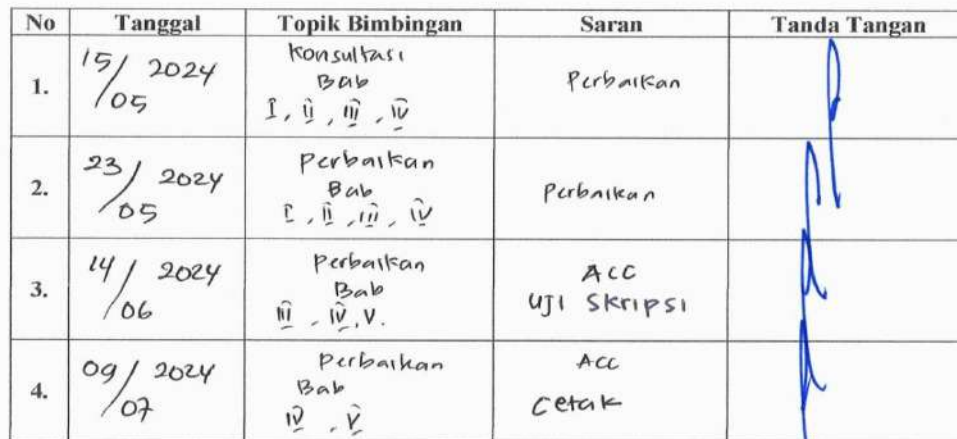 No Tanggal Topik Bimbingan Saran Tanda Tangan
1. 15/05 2024 Konsultasi Bab I, II, III, IV Perbaikan
2. 23/05 2024 Perbaikan Bab I, II, III, IV Perbaikan
3. 14/06 2024 Perbaikan Bab III, IV, V. ACC UJI SKRIPSI
4. 09/07 2024 Perbaikan Bab IV, V ACC Cetak